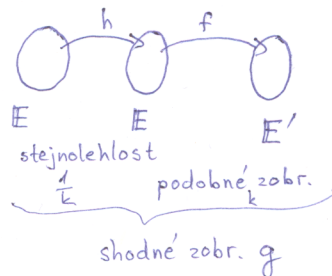 h f
𝔼 𝔼 𝔼′
stejnolehlost
1/k podobné zobr.
k
shodné zobr. g